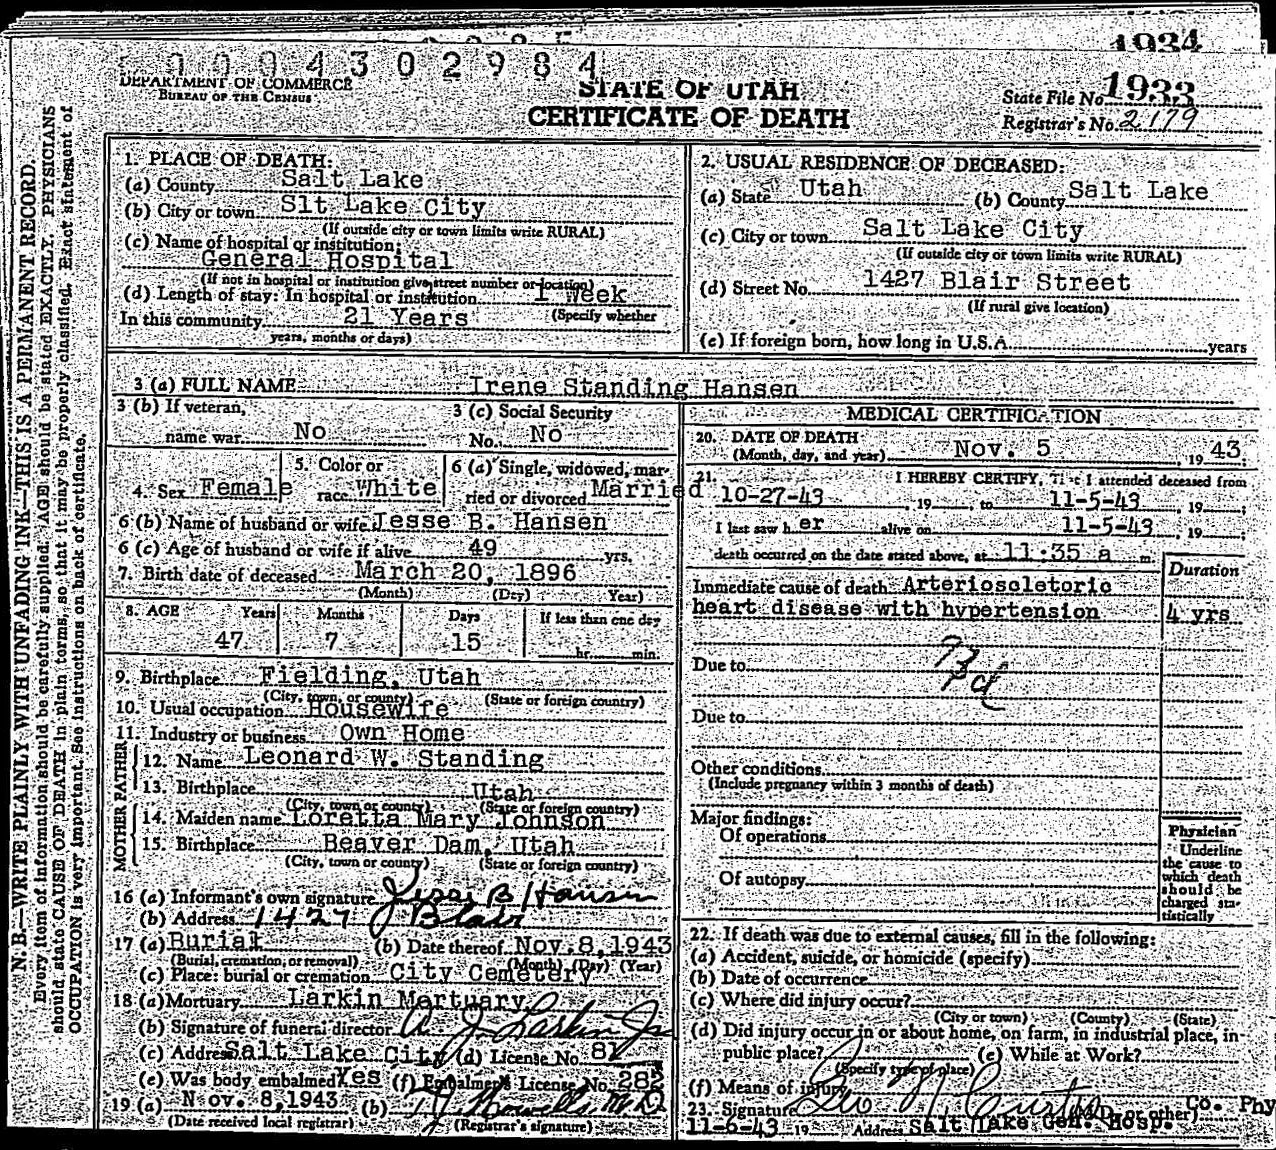 1934
0 0 9 4 3 0 2 9 8 4
DEPARTMENT OF COMMERCE
BUREAU OF THE CENSUS
STATE OF UTAH
CERTIFICATE OF DEATH
State File No. 1933
Registrar's No. 2179
N. B.—WRITE PLAINLY WITH UNFADING INK—THIS IS A PERMANENT RECORD.
Every item of information should be carefully supplied. AGE should be stated EXACTLY. PHYSICIANS
should state CAUSE OF DEATH in plain terms, so that it may be properly classified. Exact statement of
OCCUPATION is very important. See instructions on back of certificate.
1. PLACE OF DEATH:
(a) County Salt Lake
(b) City or town Slt Lake City
(If outside city or town limits write RURAL)
(c) Name of hospital or institution:
General Hospital
(If not in hospital or institution give street number or location)
(d) Length of stay: In hospital or institution 1 Week
In this community 21 Years (Specify whether
years, months or days)
2. USUAL RESIDENCE OF DECEASED:
(a) State Utah (b) County Salt Lake
(c) City or town Salt Lake City
(If outside city or town limits write RURAL)
(d) Street No. 1427 Blair Street
(If rural give location)
(e) If foreign born, how long in U.S.A. years
3 (a) FULL NAME Irene Standing Hansen
3 (b) If veteran,
name war No
3 (c) Social Security
No. No
4. Sex Female
5. Color or
race White
6 (a) Single, widowed, mar-
ried or divorced Married
6 (b) Name of husband or wife Jesse B. Hansen
6 (c) Age of husband or wife if alive 49 yrs.
7. Birth date of deceased March 20, 1896
(Month) (Day) Year)
8. AGE Years Months Days If less than one day
47 7 15 hr. min.
9. Birthplace Fielding, Utah
(City, town, or county) (State or foreign country)
10. Usual occupation Housewife
11. Industry or business Own Home
FATHER
12. Name Leonard W. Standing
13. Birthplace Utah
(City, town or county) (State or foreign country)
MOTHER
14. Maiden name Loretta Mary Johnson
15. Birthplace Beaver Dam, Utah
(City, town or county) (State or foreign country)
16 (a) Informant's own signature Jesse B Hansen
(b) Address 1427 Blair
17 (a) Burial (b) Date thereof Nov.8,1943
(Burial, cremation, or removal) (Month) (Day) (Year)
(c) Place: burial or cremation City Cemetery
18 (a) Mortuary Larkin Mortuary
(b) Signature of funeral director A. J. Larkin Jr
(c) Address Salt Lake City (d) License No. 81
(e) Was body embalmed Yes (f) Embalmer's License No. 285
19 (a) Nov. 8,1943 (b) M.D.
(Date received local registrar) (Registrar's signature)
MEDICAL CERTIFICATION
20. DATE OF DEATH
(Month, day, and year) Nov. 5, 19 43;
21. I HEREBY CERTIFY, That I attended deceased from
10-27-43, 19 , to 11-5-43, 19 ;
I last saw her alive on 11-5-43, 19 ;
death occurred on the date stated above, at 11:35 a m.
Duration
Immediate cause of death Arterioscletoric
heart disease with hypertension 4 yrs
Due to
Due to
Other conditions
(Include pregnancy within 3 months of death)
Major findings:
Of operations
Of autopsy
Physician
Underline
the cause to
which death
should be
charged sta-
tistically
22. If death was due to external causes, fill in the following:
(a) Accident, suicide, or homicide (specify)
(b) Date of occurrence
(c) Where did injury occur?
(City or town) (County) (State)
(d) Did injury occur in or about home, on farm, in industrial place, in
public place? (e) While at Work?
(Specify type of place)
(f) Means of injury
23. Signature (M.D. or other) Co. Phy
11-6-43 19 Address Salt Lake Gen. Hosp.